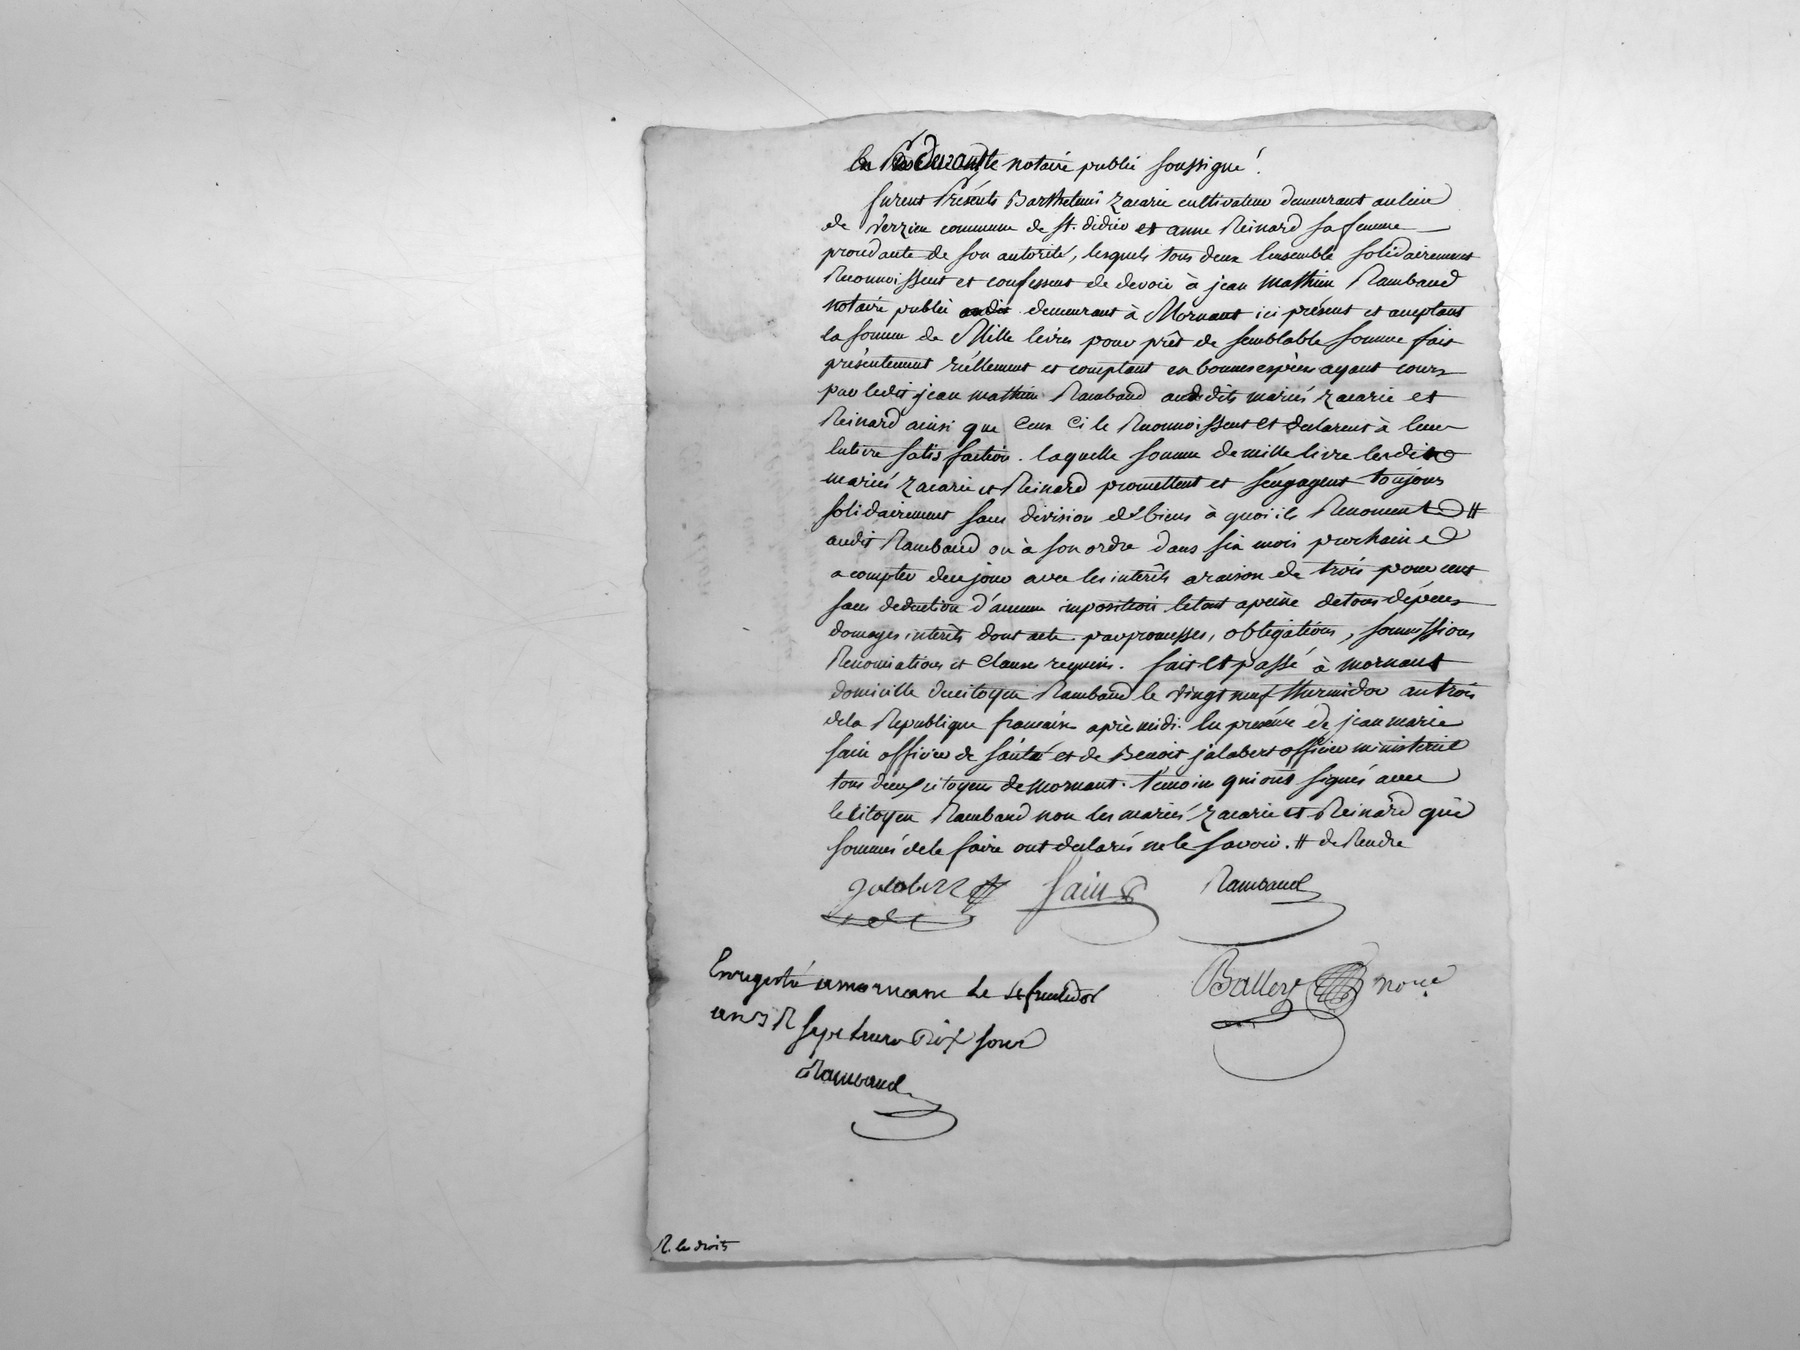 le notaire public soussigné
furent Présents Barthelemi Zacarie cultivateur demeurant au lieu
de Verzieu commune de St. didier et anne Reinard sa femme
procédante de son autorité, lesquels tous deux Ensemble solidairement
Reconnoissent et confessent de devoir à jean mathieu Rambaud
notaire public demeurant à Mornant ici présent et acceptant
la somme de Mille livres pour prêt de semblable somme fait
présentement réellement et comptant en bonnes espèces ayant cours
par ledit jean mathieu Rambaud auxdits mariés Zacarie et
Reinard ainsi que Ceux Ci le Reconnoissent et declarent à leur
Entière satisfaction. laquelle somme de mille livre lesdits
mariés Zacarie et Reinard promettent et s'engagent toujours
solidairement sans division de biens à quoi ils Renoncent #
audit Rambaud ou à son ordre dans six mois prochain
a compter de ce jour avec les intérêts a raison de trois pour cent
sans deduction d'aucune imposition le tout a peine de tous dépens
domages intérêts dont acte par promesses, obligations, soumissions
Renonciations et Clauses requises. fait et passé à mornant
domicille du citoyen Rambaud le vingt neuf thermidor an trois
de la République francaise après midi. En présence de jean marie
fain officier de santé et de Benoit jalabert officier ministeriel
tous deux citoyens de mornant. témoins qui ont signés avec
le citoyen Rambaud non les mariés Zacarie et Reinard qui
sommés de le faire ont declarés ne le savoir. # de Rendre
Jalabert fain Rambaud
Enregistré a mornant le fructidor
an 3 R sept livres dix sous
Balleye no.re
Rambaud
R. les droits